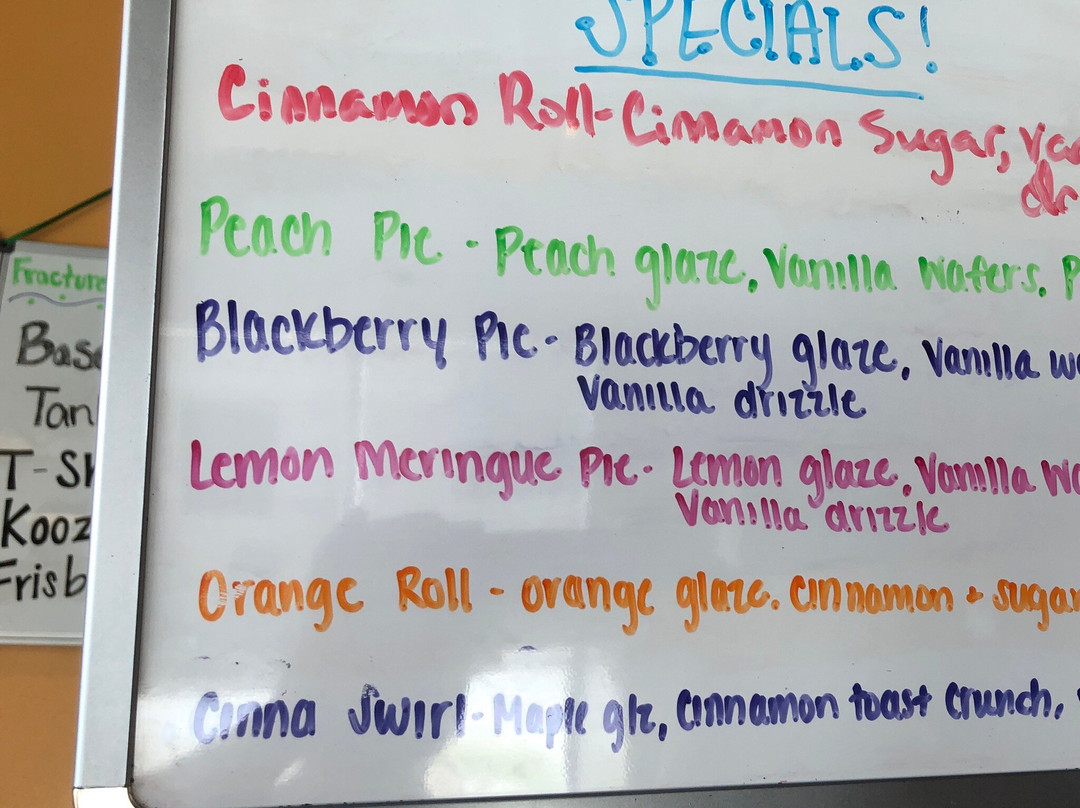 SPECIALS!
Cinnamon Roll-Cinnamon Sugar,
Peach Pie - Peach glaze, Vanilla Wafers,
Blackberry Pie - Blackberry glaze, Vanilla
Vanilla drizzle
Lemon Meringue Pie - Lemon glaze, Vanilla
Vanilla drizzle
Orange Roll - orange glaze. cinnamon + sugar
Cinna Swirl - Maple glz, Cinnamon toast Crunch,
Fracture
Base
Tan
T-Sh
Kooz
Frisb